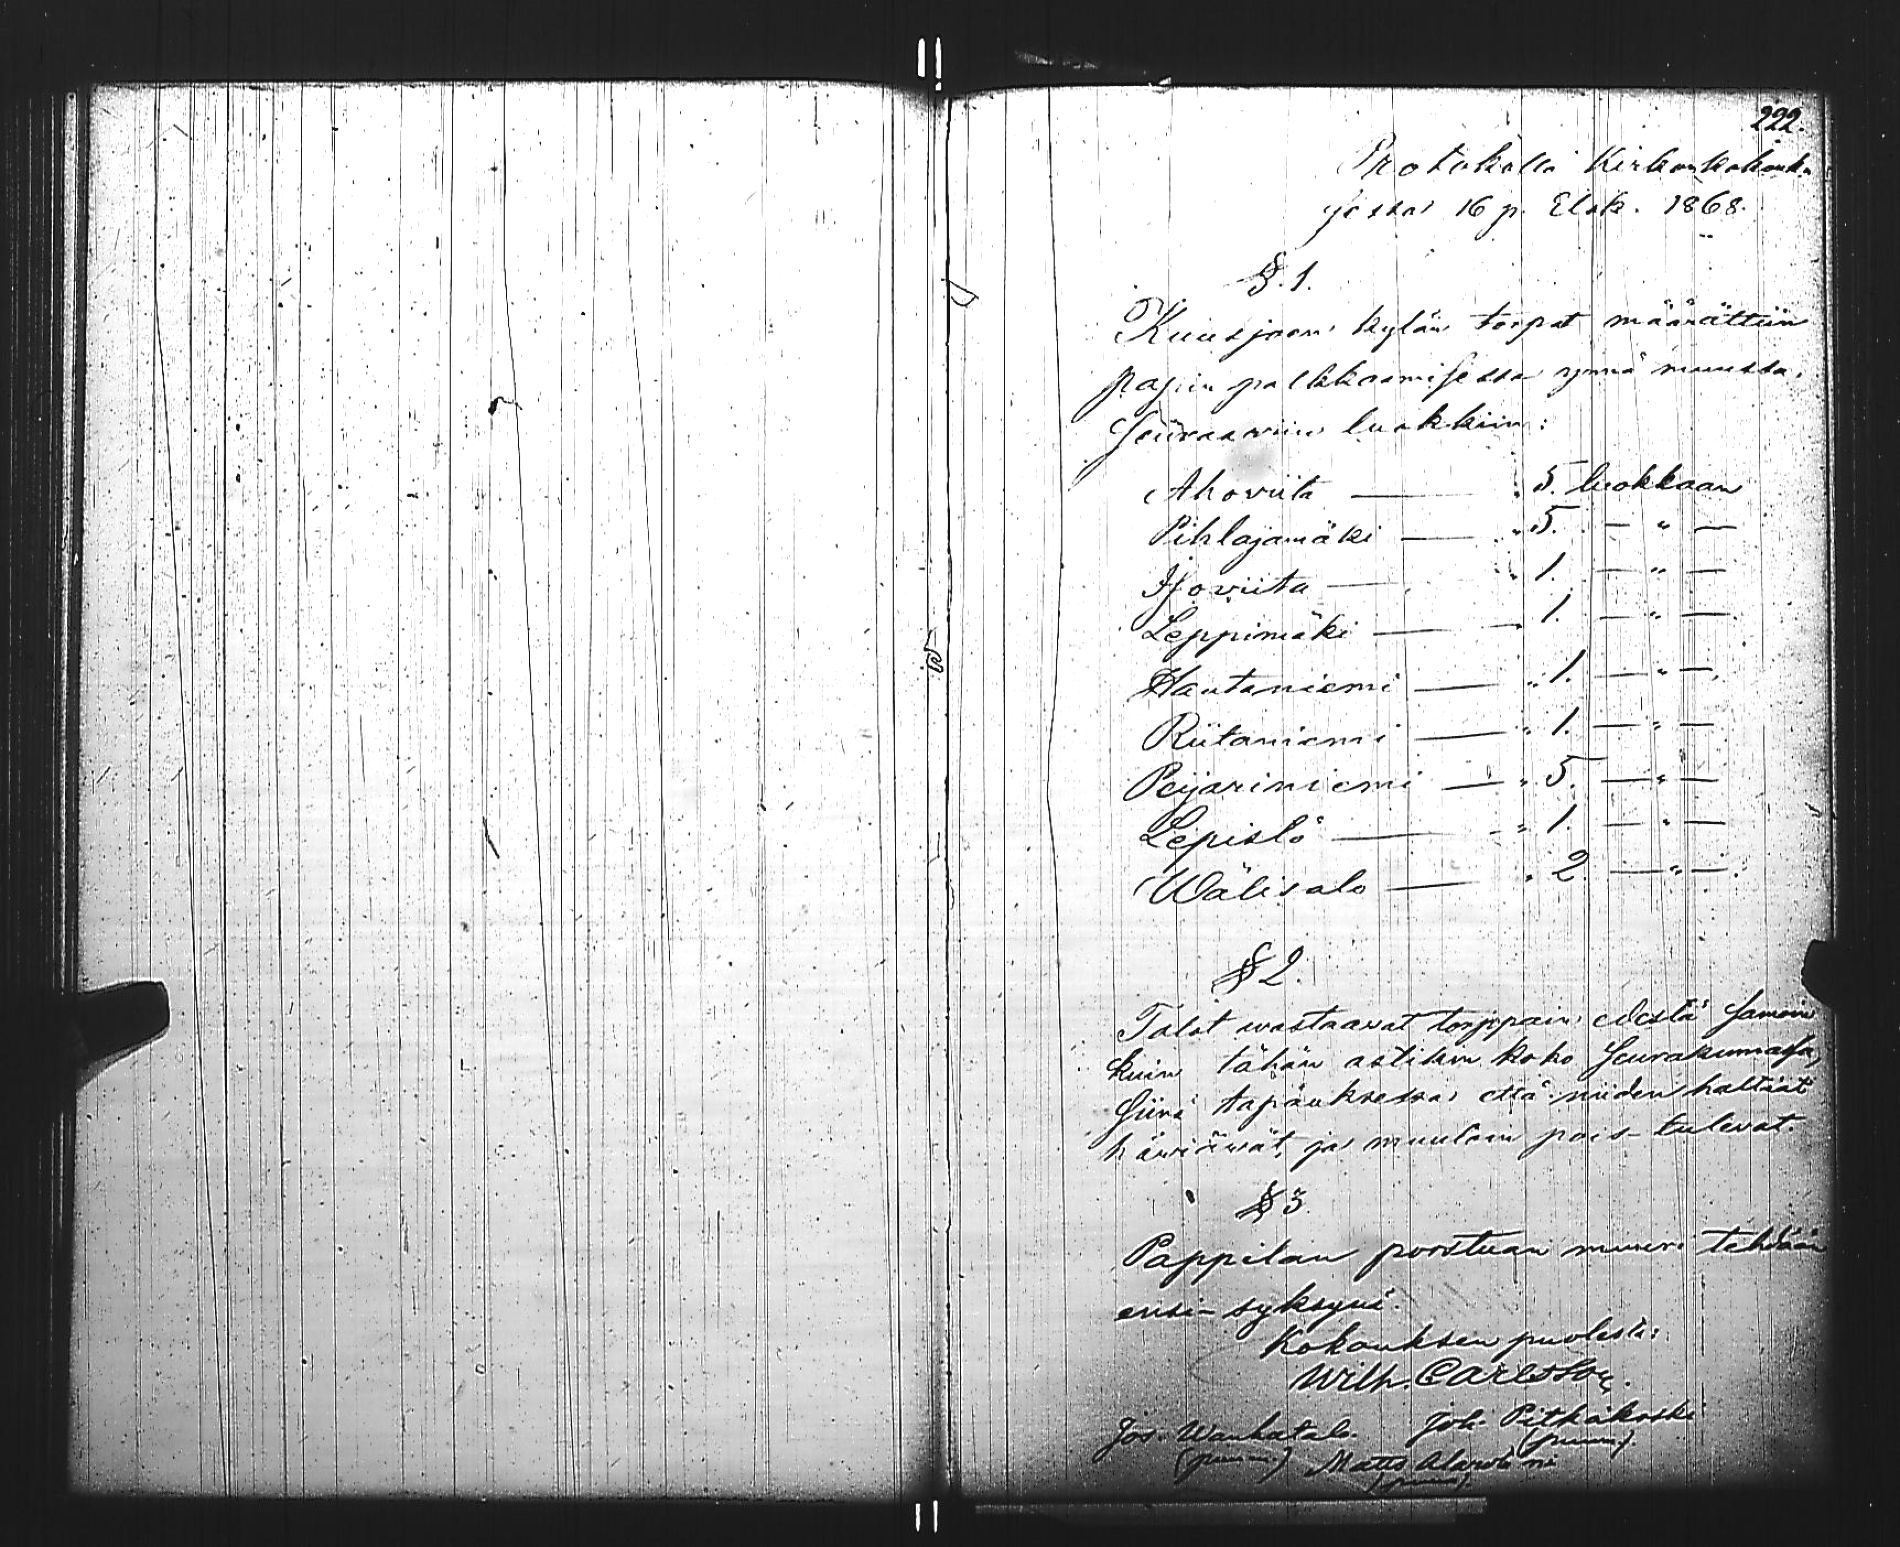 222.
Protokolla Kirkonkokouk-
sessa 16 p. Elok. 1868.
§. 1.
Kuusjoen kylän torpat määrättiin
papin palkkaamisessa ynnä muussa,
seuraaviin luokkiin:
Ahoviita — " 5. luokkaan
Pihlajamäki — " 5. — " —
Isoviita — " 1. — " —
Leppimäki — " 1. — " —
Hautaniemi — " 1. — " —
Riitaniemi — " 1. — " —
Peijariniemi — " 5. — " —
Lepistö — " 1. — " —
Wälisalo — " 2. — " —
§ 2.
Talot wastaawat torppain edestä samoin
kuin tähän astikin koko seurakunnassa,
siinä tapauksessa että niiden haltiat
häwiäwät ja muutoin pois-tulevat.
§ 3.
Pappilan porstuan muuri tehdään
ensi-syksynä.
Kokouksen puolesta:
Wilh. Carlsson.
Jos. Wanhatalo Joh. Pitkäkoski
(puum.) (puum.)
Matts
(puum.)